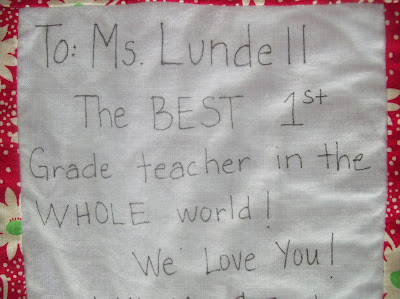 To: Ms. Lundell
The BEST 1st
Grade teacher in the
WHOLE world!
We Love You!